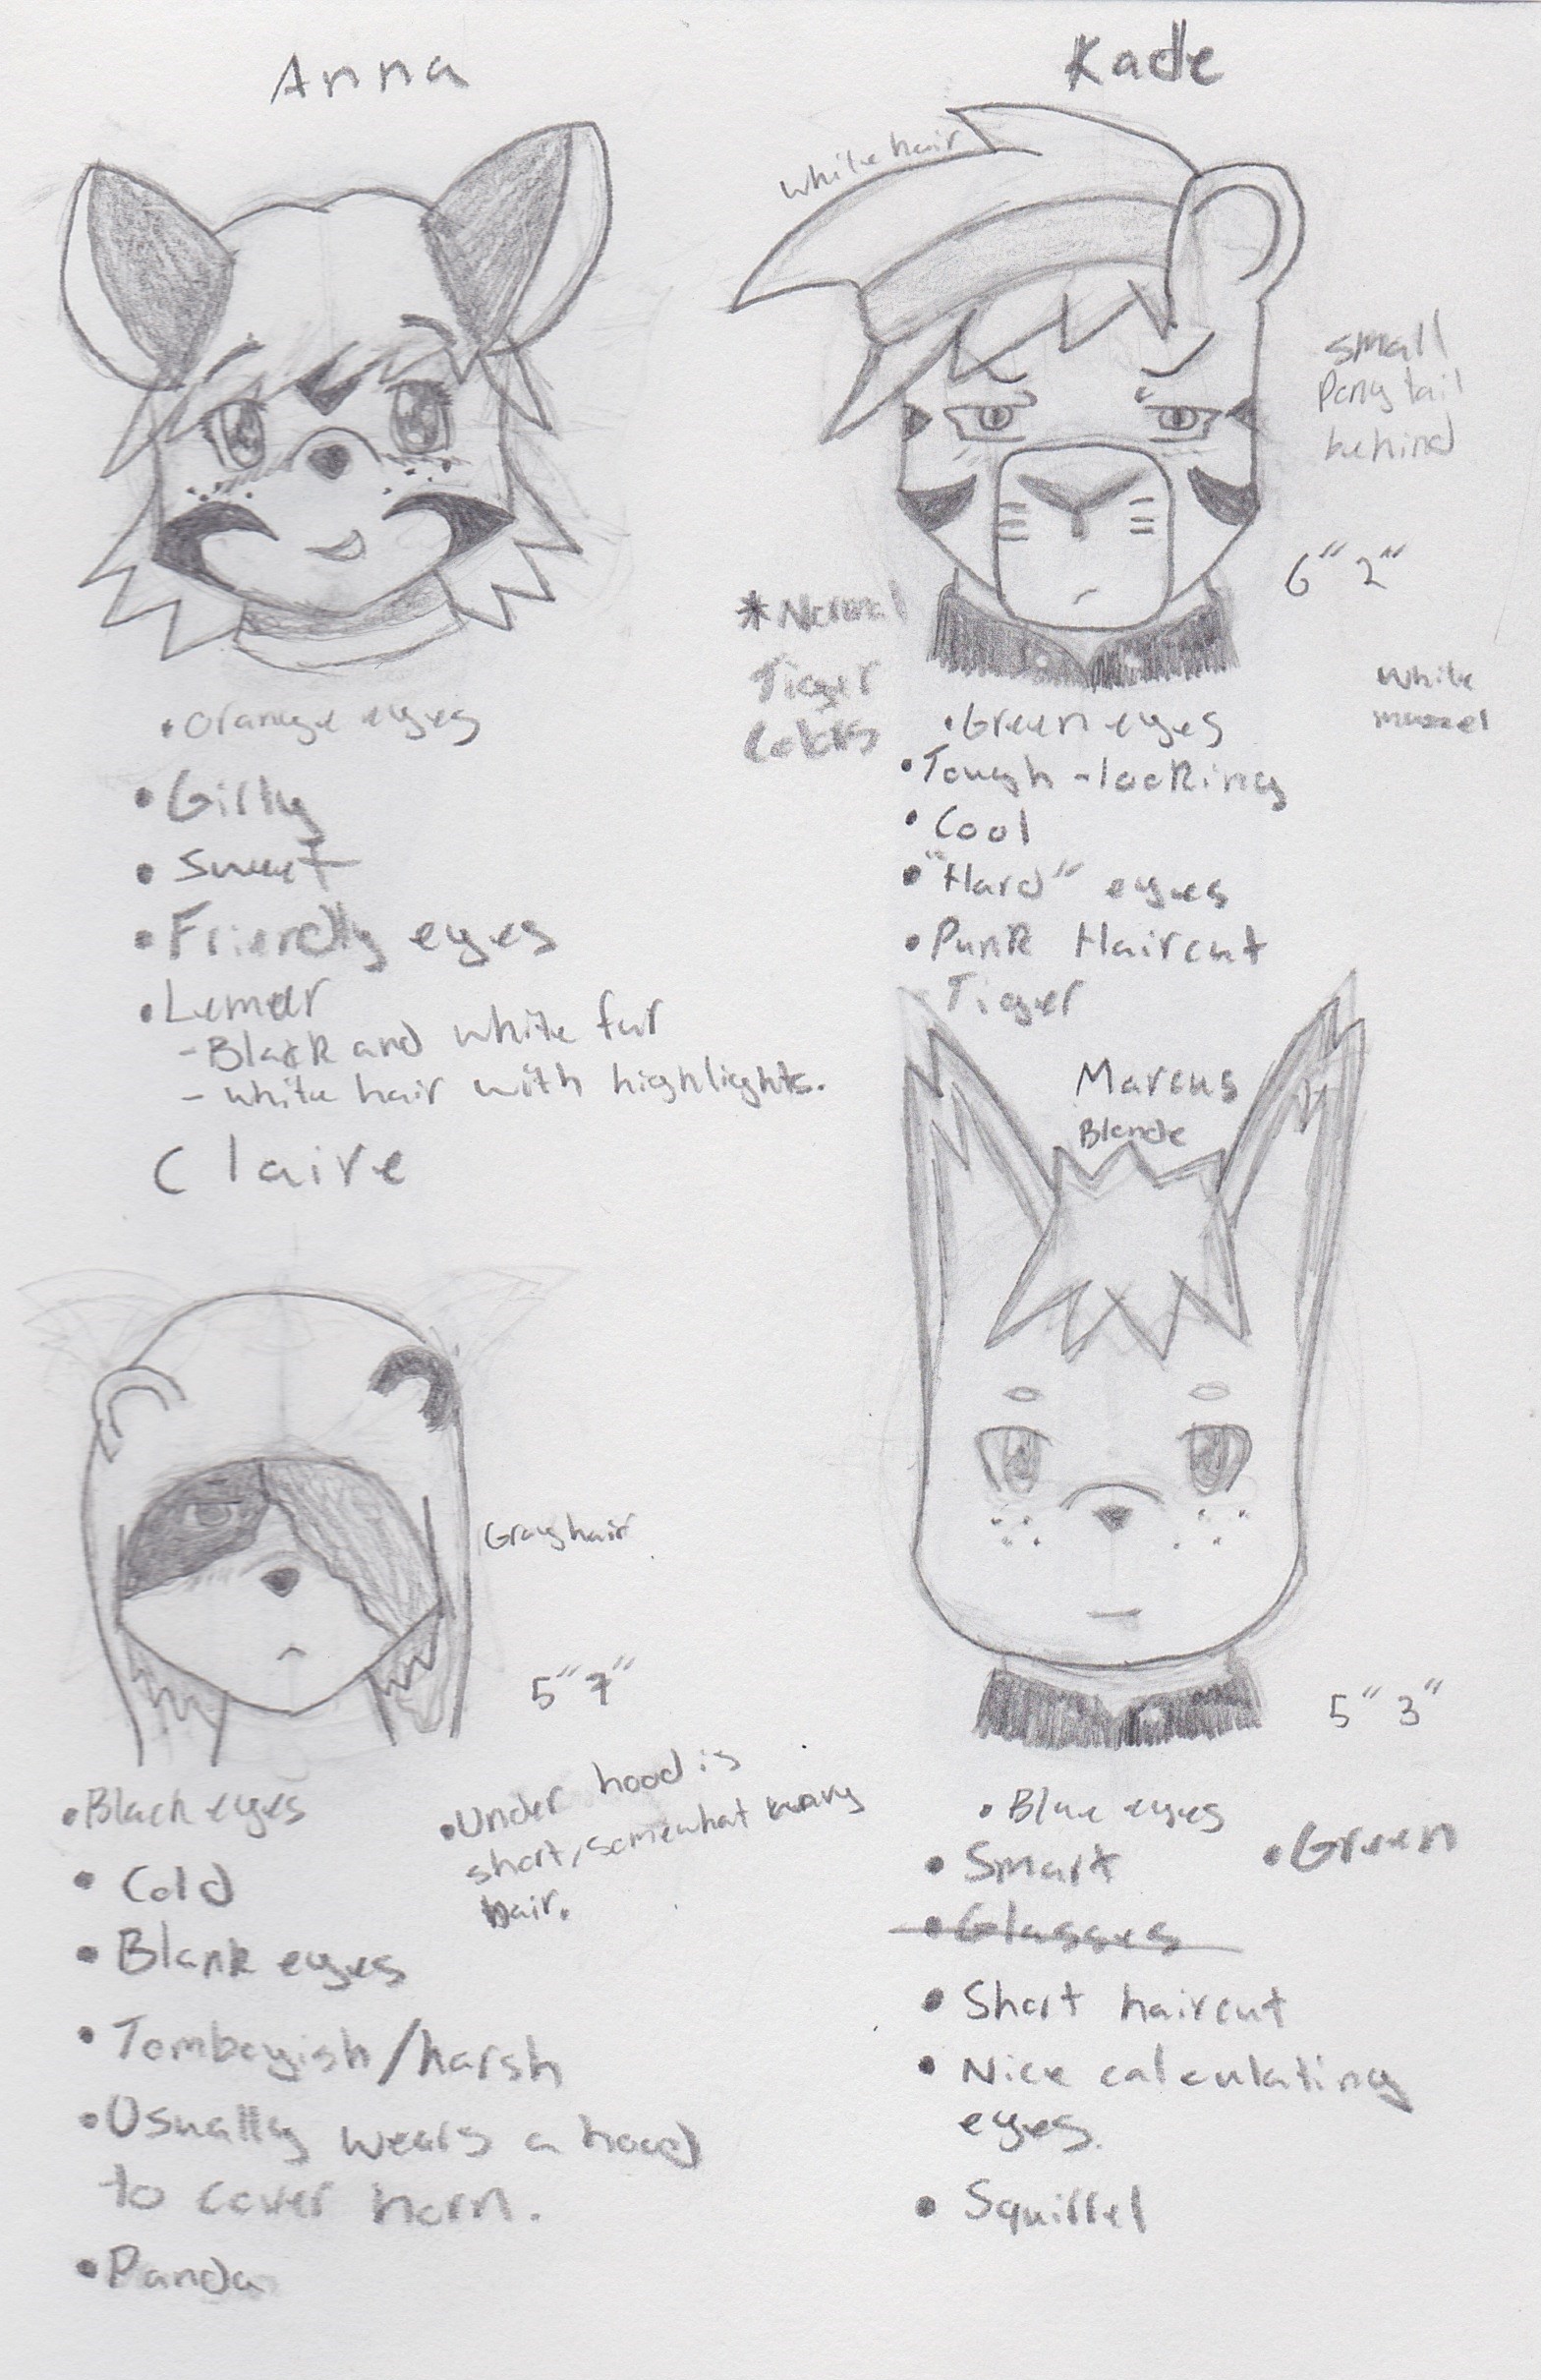 Anna
• Orange eyes
• Girly
• Sweet
• Friendly eyes
• Lemur
- Black and white fur
- white hair with highlights.
Kade
white hair
small
Ponytail
behind
6" 2"
* Normal
Tiger
Colors
white
muzzel
• Green eyes
• Tough-looking
• Cool
• "Hard" eyes
• Punk Haircut
Tiger
Claire
Gray hair
5" 7"
• Black eyes
• Cold
• Blank eyes
• Tomboyish/harsh
• Usually wears a hood
to cover horn.
• Panda
• Under hood is
short, somewhat wavy
hair.
Marcus
Blonde
5" 3"
• Blue eyes
• Smart
• Green
• Glasses
• Short haircut
• Nice calculating
eyes.
• Squirrel